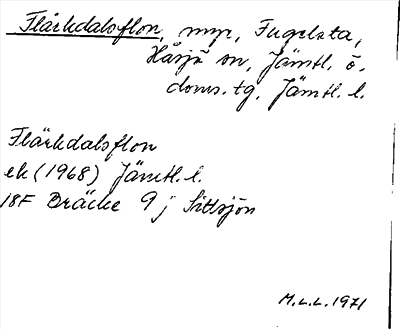 Flärkdalsflon, myr, Fugelsta,
Håsjö sn, Jämtl. ö.
doms. tg, Jämtl. l.
Flärkdalsflon
ek (1968) Jämtl. l.
18F Bräcke 9 j Sittsjön
M.L.L. 1971